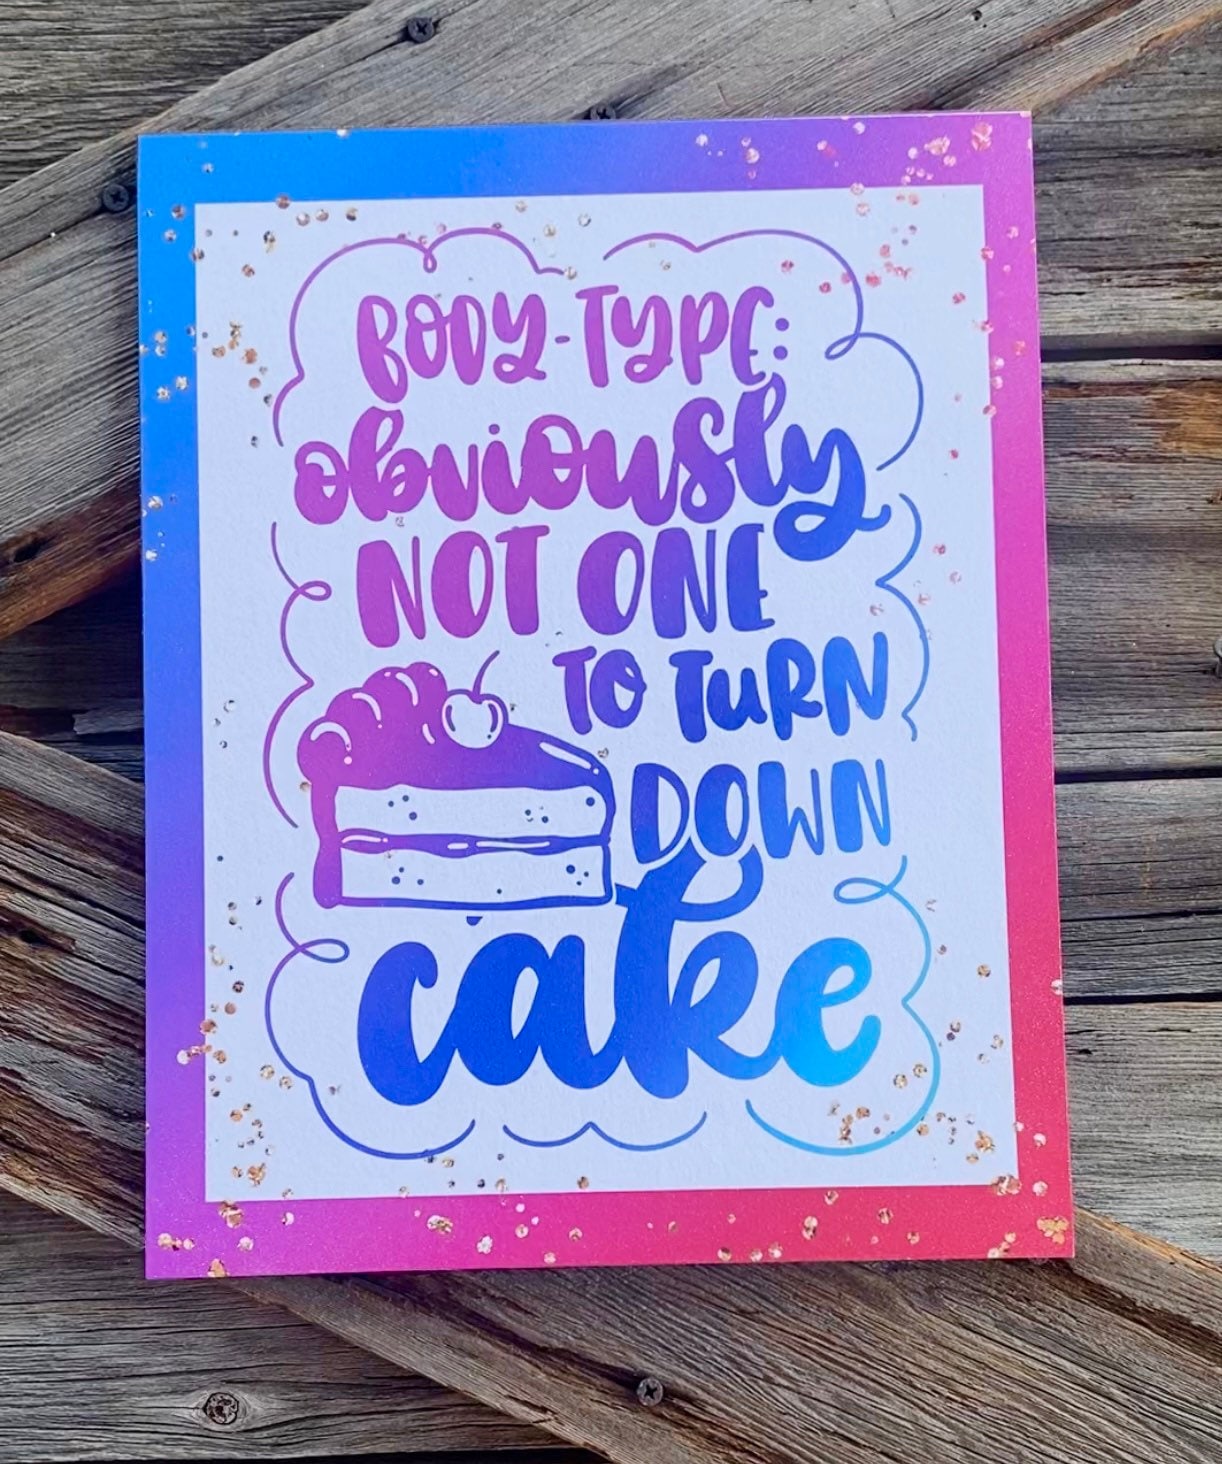 BODY-TYPE:
obviously
NOT ONE
TO TuRN
DOWN
cake